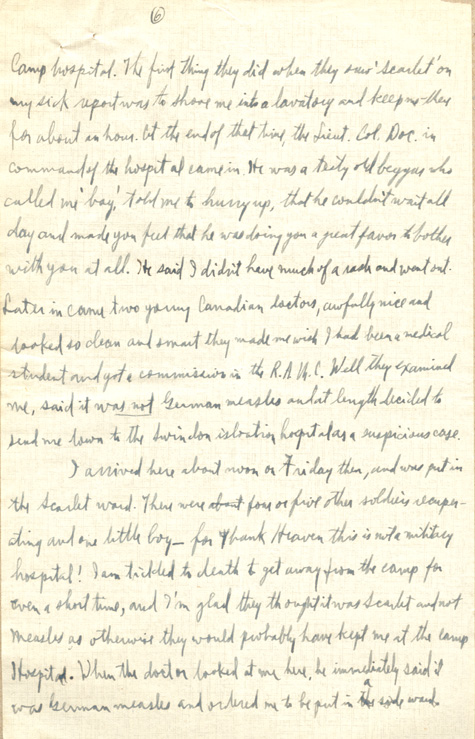 6
Camp hospital. The first thing they did when they saw 'scarlet' on
my sick report was to shove me into a lavatory and keep me there
for about an hour. At the end of that time, the Lieut. Col. Doc. in
command of the hospital came in. He was a testy old beggar who
called me 'boy', told me to hurry up, that he couldn't wait all
day and made you feel that he was doing you a great favor to bother
with you at all. He said I didn't have much of a rash and went out.
Later in came two young Canadian doctors, awfully nice and
looked so clean and smart they made me wish I had been a medical
student and got a commission in the R.A.M.C. Well, they examined
me, said it was not German measles and at length decided to
send me down to the Swindon isolation hospital as a suspicious case.
I arrived here about noon on Friday then, and was put in
the Scarlet ward. There were about four or five other soldiers recuper-
ating and one little boy – for Thank Heaven this is not a military
hospital! I am tickled to death to get away from the camp for
even a short time, and I'm glad they thought it was Scarlet and not
Measles as otherwise they would probably have kept me at the camp
Hospital. When the doctor looked at me here, he immediately said it
was German measles and ordered me to be put in a side ward.